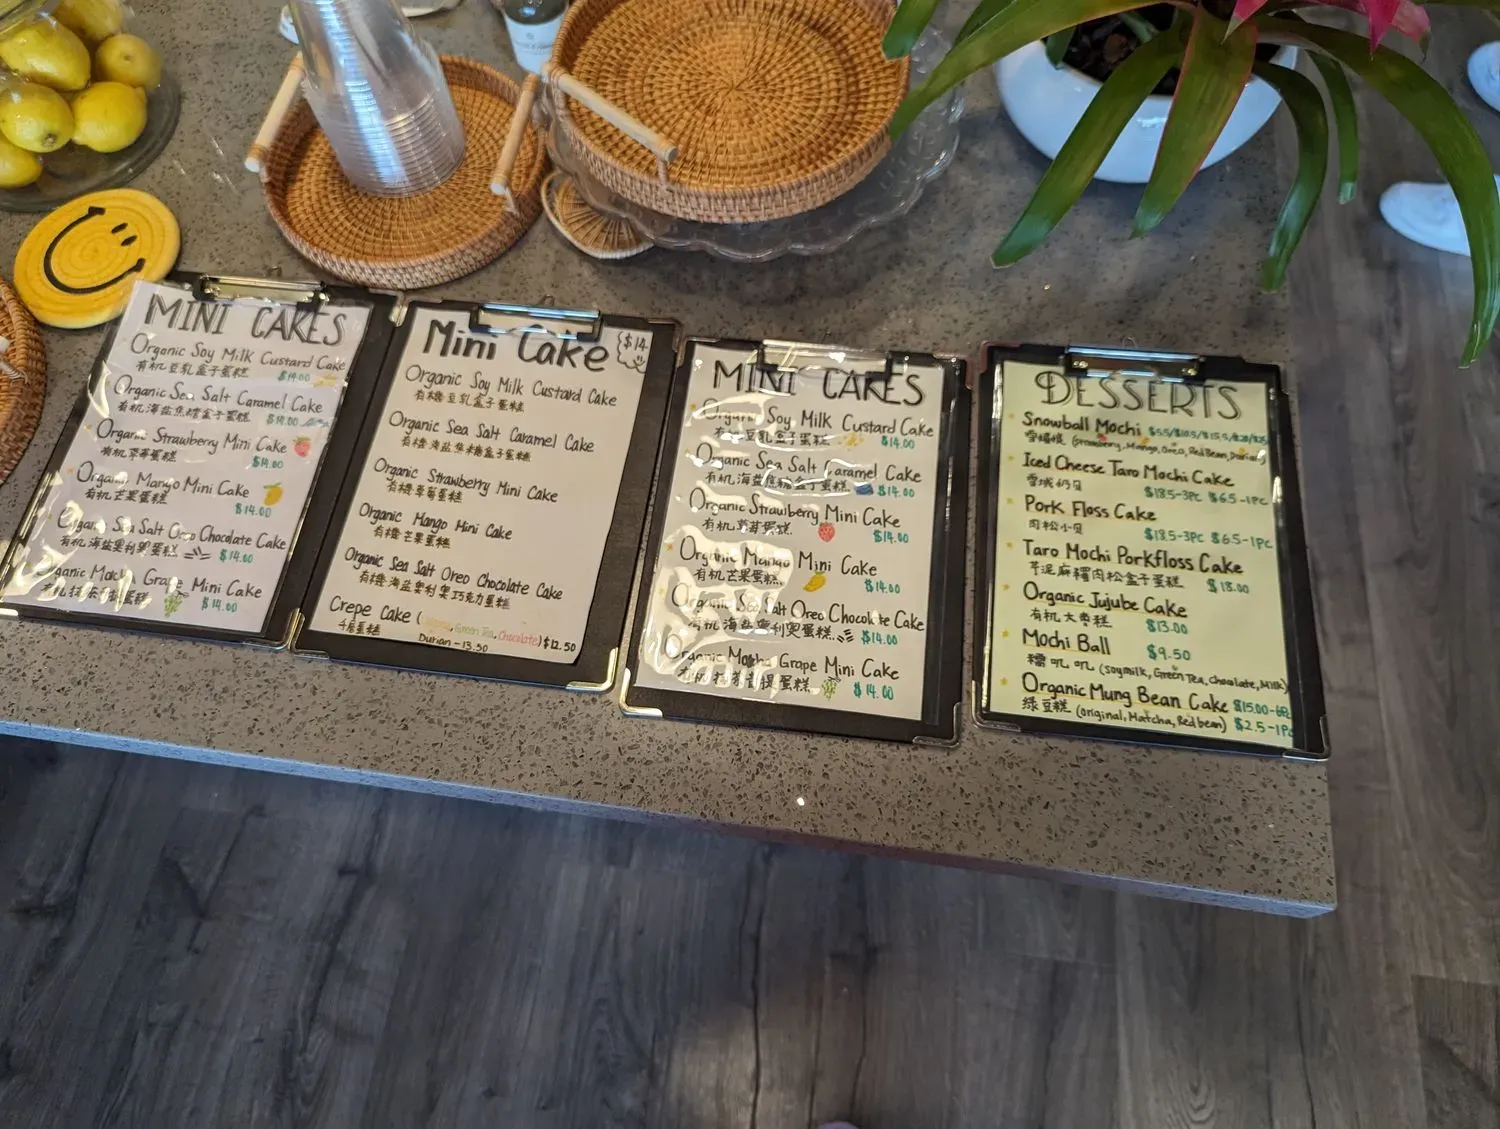 MINI CAKES
Organic Soy Milk Custard Cake
有机豆乳盒子蛋糕 $14.00
Organic Sea Salt Caramel Cake
有机海盐焦糖盒子蛋糕 $14.00
Organic Strawberry Mini Cake
有机草莓蛋糕 $14.00
Organic Mango Mini Cake
有机芒果蛋糕 $14.00
Organic Sea Salt Oreo Chocolate Cake
有机海盐奥利奥蛋糕 $14.00
Organic Matcha Grape Mini Cake
$14.00
Mini Cake
$14
Organic Soy Milk Custard Cake
有機豆乳盒子蛋糕
Organic Sea Salt Caramel Cake
有機海鹽焦糖盒子蛋糕
Organic Strawberry Mini Cake
有機草莓蛋糕
Organic Mango Mini Cake
有機芒果蛋糕
Organic Sea Salt Oreo Chocolate Cake
有機海盐奧利奧巧克力蛋糕
Crepe Cake (Green Tea, Chocolate) $12.50
千层蛋糕 Durian - 13.50
MINI CAKES
Organic Soy Milk Custard Cake
有机豆乳盒子蛋糕 $14.00
Organic Sea Salt Caramel Cake
有机海盐焦糖盒子蛋糕 $14.00
Organic Strawberry Mini Cake
有机草莓蛋糕 $14.00
Organic Mango Mini Cake
有机芒果蛋糕 $14.00
Organic Sea Salt Oreo Chocolate Cake
有机海盐奥利奥蛋糕 $14.00
Organic Matcha Grape Mini Cake
有机抹茶香提蛋糕 $14.00
DESSERTS
Snowball Mochi $5.5/$10.5/$15.5/$20/$25
(Strawberry, Mango, Oreo, Red Bean, Durian)
Iced Cheese Taro Mochi Cake
雪域奶贝 $18.5-3PC $6.5-1PC
Pork Floss Cake
肉松小贝 $18.5-3PC $6.5-1PC
Taro Mochi Porkfloss Cake
芋泥麻糬肉松盒子蛋糕 $18.00
Organic Jujube Cake
有机大枣糕 $13.00
Mochi Ball $9.50
糯叽叽 (Soymilk, Green Tea, Chocolate, Milk)
Organic Mung Bean Cake $15.00-6PC
绿豆糕 (Original, Matcha, Redbean) $2.5-1PC